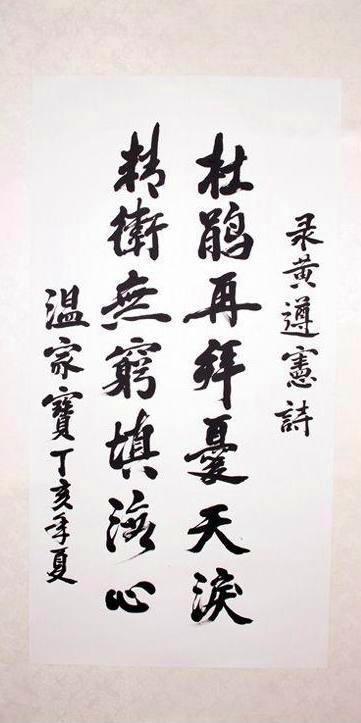 录黄遵憲詩
杜鹃再拜憂天淚
精衛無窮填海心
温家寶丁亥年夏